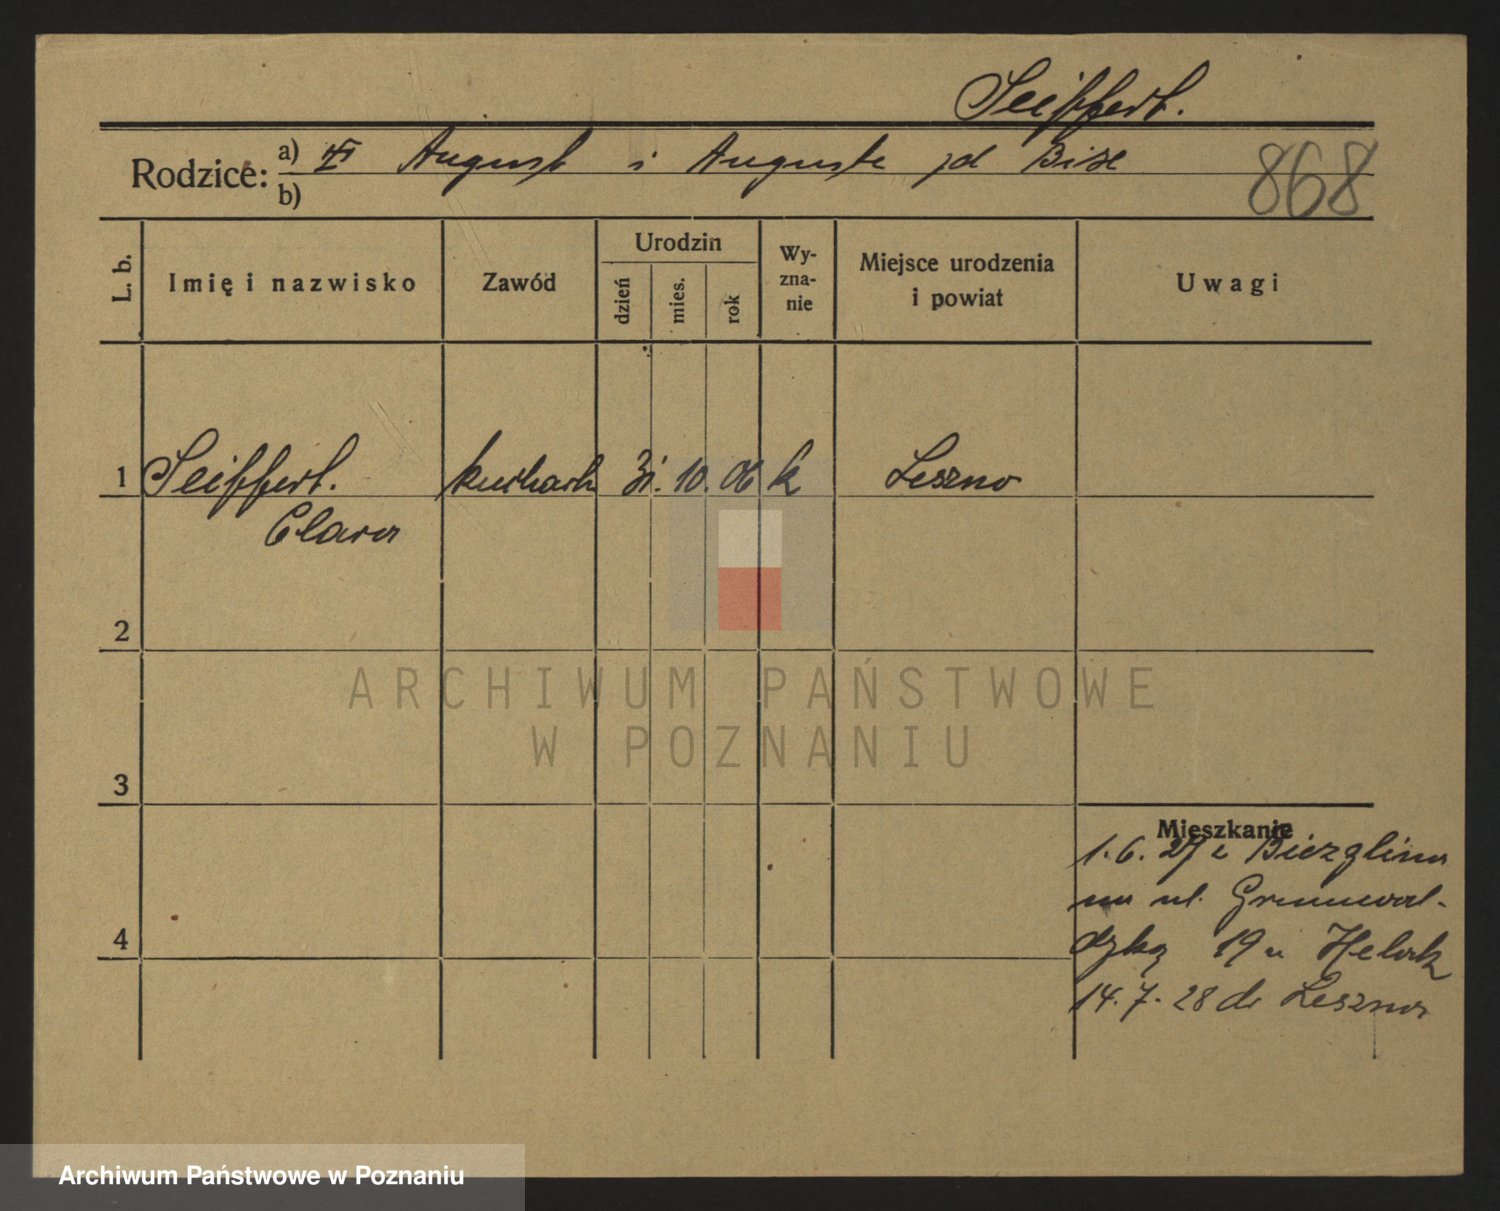 Seiffert.
Rodzice: a) August i Auguste zd Bize
b)
868
L. b.
Imię i nazwisko
Zawód
Urodzin
dzień
mies.
rok
Wy-
zna-
nie
Miejsce urodzenia
i powiat
Uwagi
1 Seiffert. kucharka 31. 10. 06 k Leszno
Clara
2
3
4
Mieszkanie
1. 6. 27 z Biezglinu
na ul. Grunwal-
dzką 19 u Helak
14. 7. 28 do Leszna
ARCHIWUM PAŃSTWOWE
W POZNANIU
Archiwum Państwowe w Poznaniu